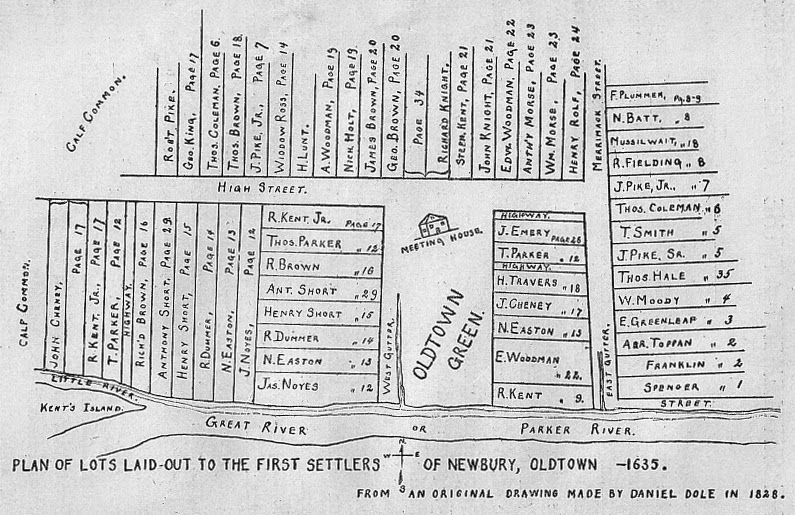 CALF COMMON.
ROB'T PIKE.
GEO. KING, PAGE 17
THOS. COLEMAN, PAGE 6.
THOS. BROWN, PAGE 18.
J. PIKE, JR., PAGE 7
WIDOW ROSS, PAGE 14
H. LUNT.
A. WOODMAN, PAGE 19
NICK HOLT, PAGE 19.
JAMES BROWN, PAGE 20
GEO. BROWN, PAGE 20
PAGE 34
RICHARD KNIGHT,
STEPH. KENT, PAGE 21
JOHN KNIGHT, PAGE 21.
EDW. WOODMAN, PAGE 22
ANTH'Y MORSE, PAGE 23
WM. MORSE, PAGE 23
HENRY ROLF, PAGE 24
MERRIMACK STREET.
F. PLUMMER, PG. 8-9
N. BATT, " 8
MUSSILWAIT, " 18
R. FIELDING, " 8
J. PIKE, JR., " 7
THOS. COLEMAN, " 6
T. SMITH " 5
J. PIKE, SR. " 5
THOS. HALE " 35
W. MOODY " 4
E. GREENLEAF " 3
ABR. TOPPAN " 2
FRANKLIN " 2
SPENCER " 1
STREET.
HIGH STREET.
CALF COMMON.
JOHN CHENEY,
PAGE 17
R. KENT, JR., PAGE 17
T. PARKER, PAGE 12
HIGHWAY.
RICH'D BROWN, PAGE 16
ANTHONY SHORT, PAGE 29.
HENRY SHORT, PAGE 15
R. DUMMER, PAGE 14
N. EASTON, PAGE 13
J. NOYES, PAGE 12
R. KENT, JR. PAGE 17
THOS. PARKER " 12
R. BROWN " 16
ANT. SHORT " 29
HENRY SHORT " 15
R. DUMMER " 14
N. EASTON " 13
JAS. NOYES " 12
WEST GUTTER.
MEETING HOUSE.
OLDTOWN
GREEN.
HIGHWAY.
J. EMERY PAGE 26
T. PARKER " 12
HIGHWAY.
H. TRAVERS " 18
J. CHENEY " 17
N. EASTON " 13
E. WOODMAN
" 22.
R. KENT " 9.
EAST GUTTER.
LITTLE RIVER.
KENT'S ISLAND.
GREAT RIVER OR PARKER RIVER.
N
W E
S
PLAN OF LOTS LAID-OUT TO THE FIRST SETTLERS OF NEWBURY, OLDTOWN -1635.
FROM AN ORIGINAL DRAWING MADE BY DANIEL DOLE IN 1828.